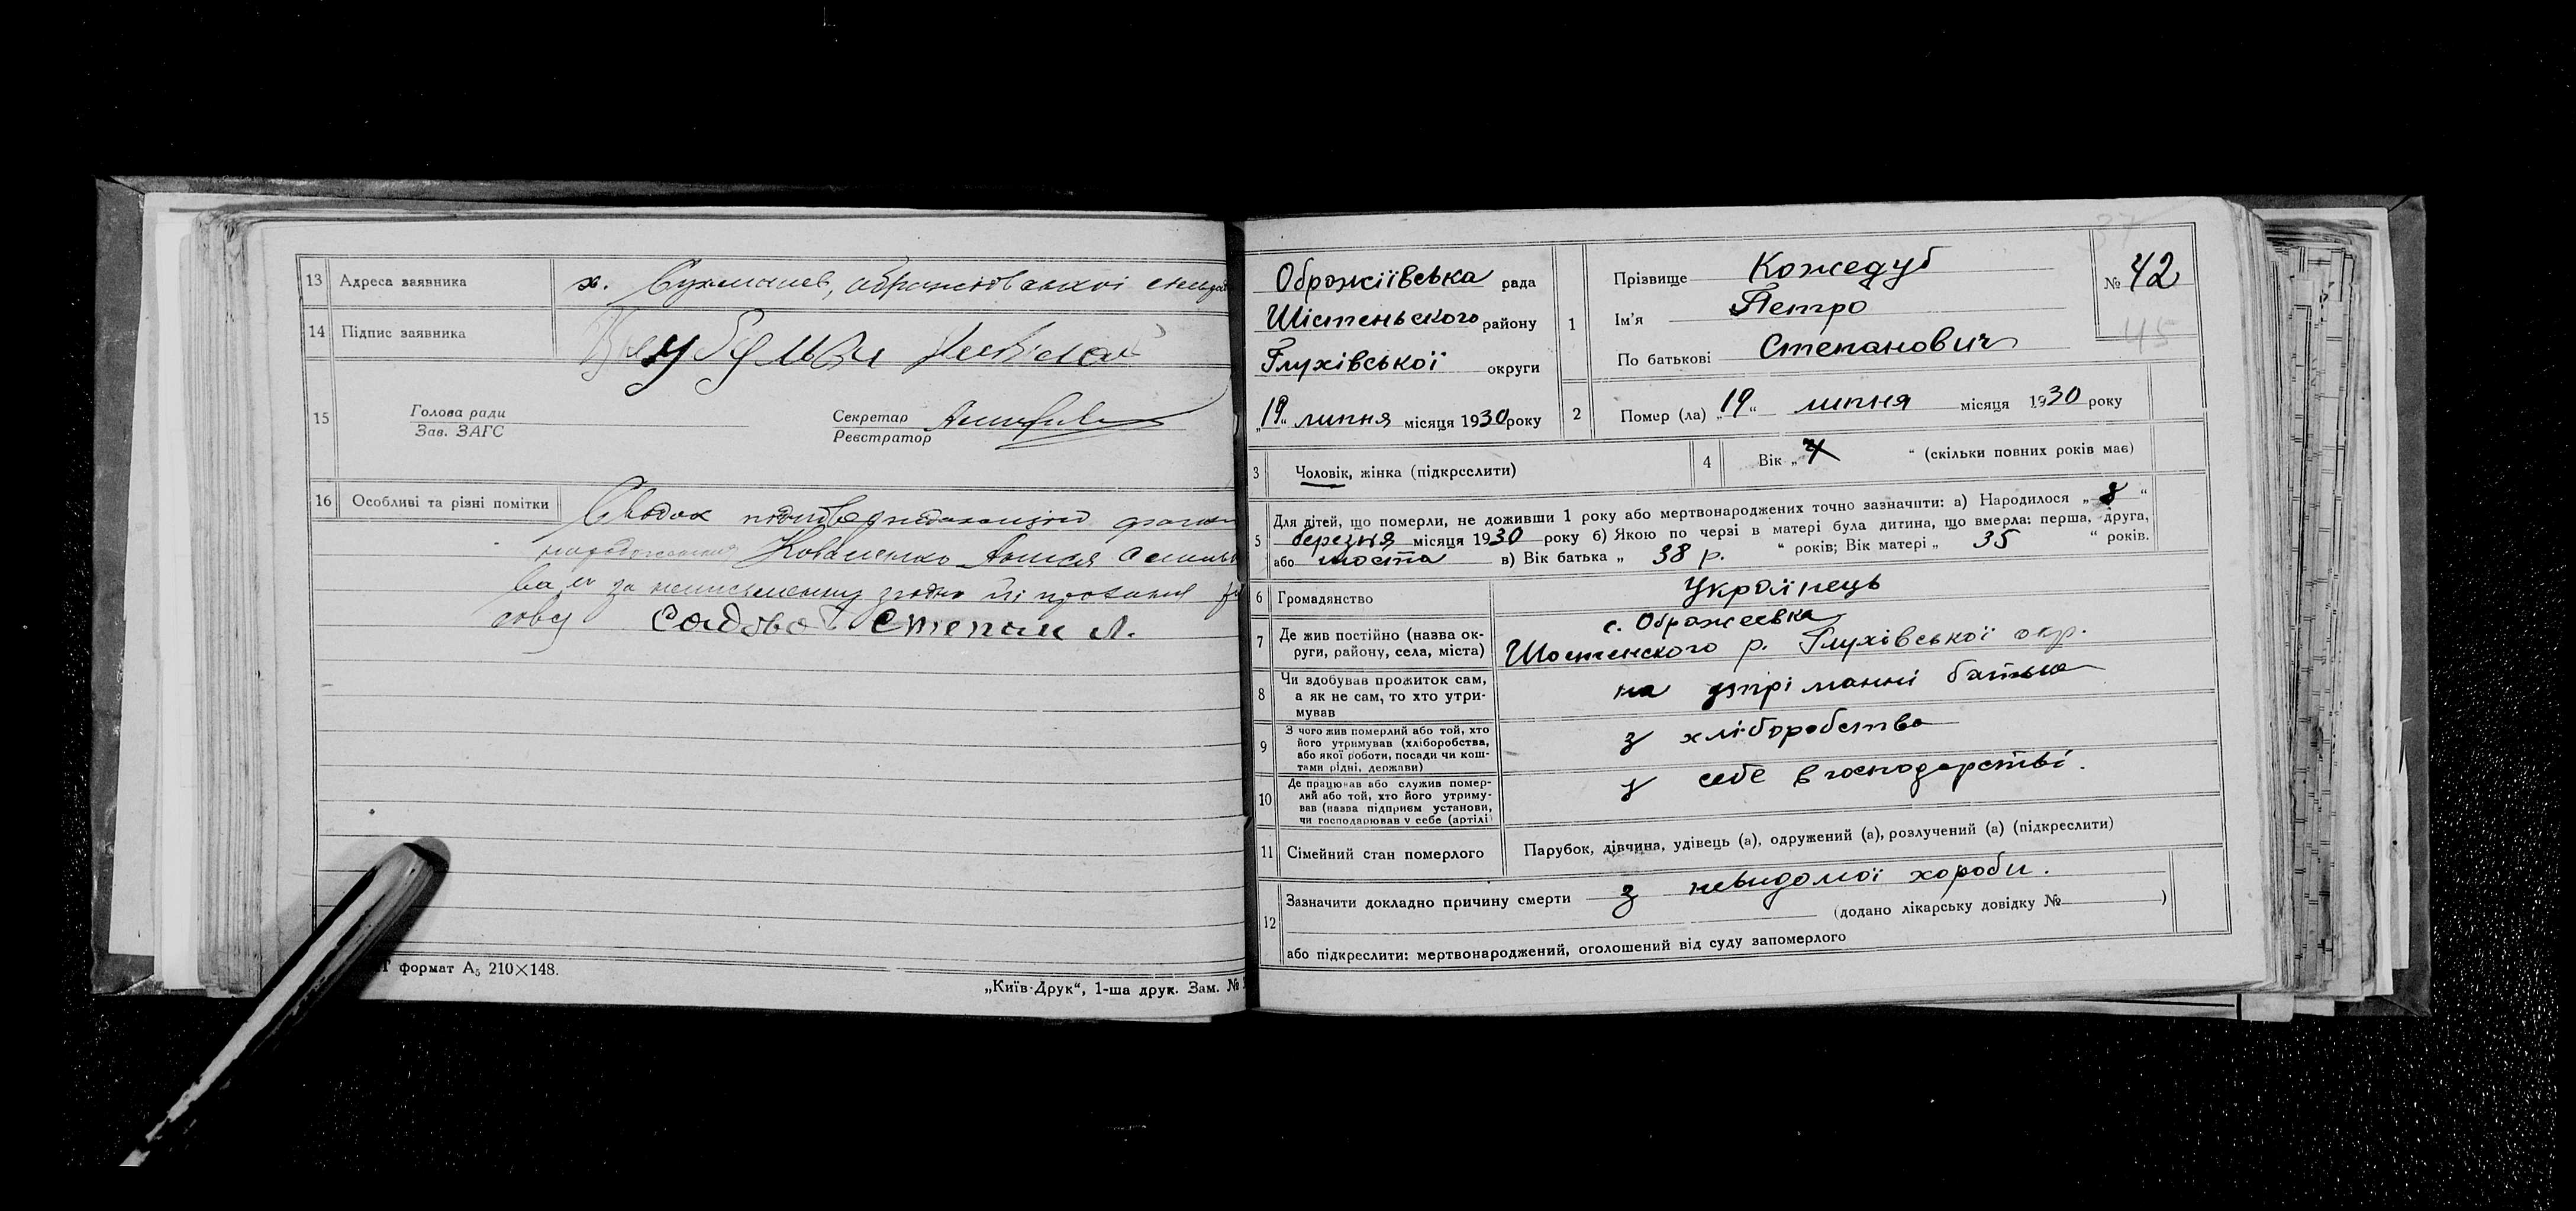 13 Адреса заявника х.
14 Підпис заявника
15 Голова ради
Зав. ЗАГС
Секретар
Реєстратор
16 Особливі та різні помітки
Коваленко
за неписьменну згодно її прохання
Степан Л.
формат А5 210×148.
„Київ-Друк“, 1-ша друк. Зам. №
37
Ображіївська рада
Шістеньского району
Глухівської округи
„19“ липня місяця 1930 року
1 Прізвище Кожедуб
Ім’я Петро
По батькові Степанович
№ 42
45
2 Помер (ла) „19“ липня місяця 1930 року
3 Чоловік, жінка (підкреслити)
4 Вік „ “ (скільки повних років має)
5 Для дітей, що померли, не доживши 1 року або мертвонароджених точно зазначити: а) Народилося „8“
березня місяця 1930 року б) Якою по черзі в матері була дитина, що вмерла: перша, друга,
або шоста в) Вік батька „ 38 р. “ років; Вік матері „ 35 “ років.
6 Громадянство Українець
7 Де жив постійно (назва округи, району, села, міста) с. Ображеевка
Шостенского р. Глухівської окр.
8 Чи здобував прожиток сам,
а як не сам, то хто утримував
на утріманні батька
9 З чого жив померлий або той, хто
його утримував (хліборобства,
або якої роботи, посади чи коштами рідні, держави)
з хліборобства
10 Де працював або служив померлий або той, хто його утримував (назва підприєм установи,
чи господарював у себе (артілі)
у себе в господарстві.
11 Сімейний стан померлого Парубок, дівчина, удівець (а), одружений (а), розлучений (а) (підкреслити)
12 Зазначити докладно причину смерти з невидомої хороби.
(додано лікарську довідку № )
або підкреслити: мертвонароджений, оголошений від суду запомерлого